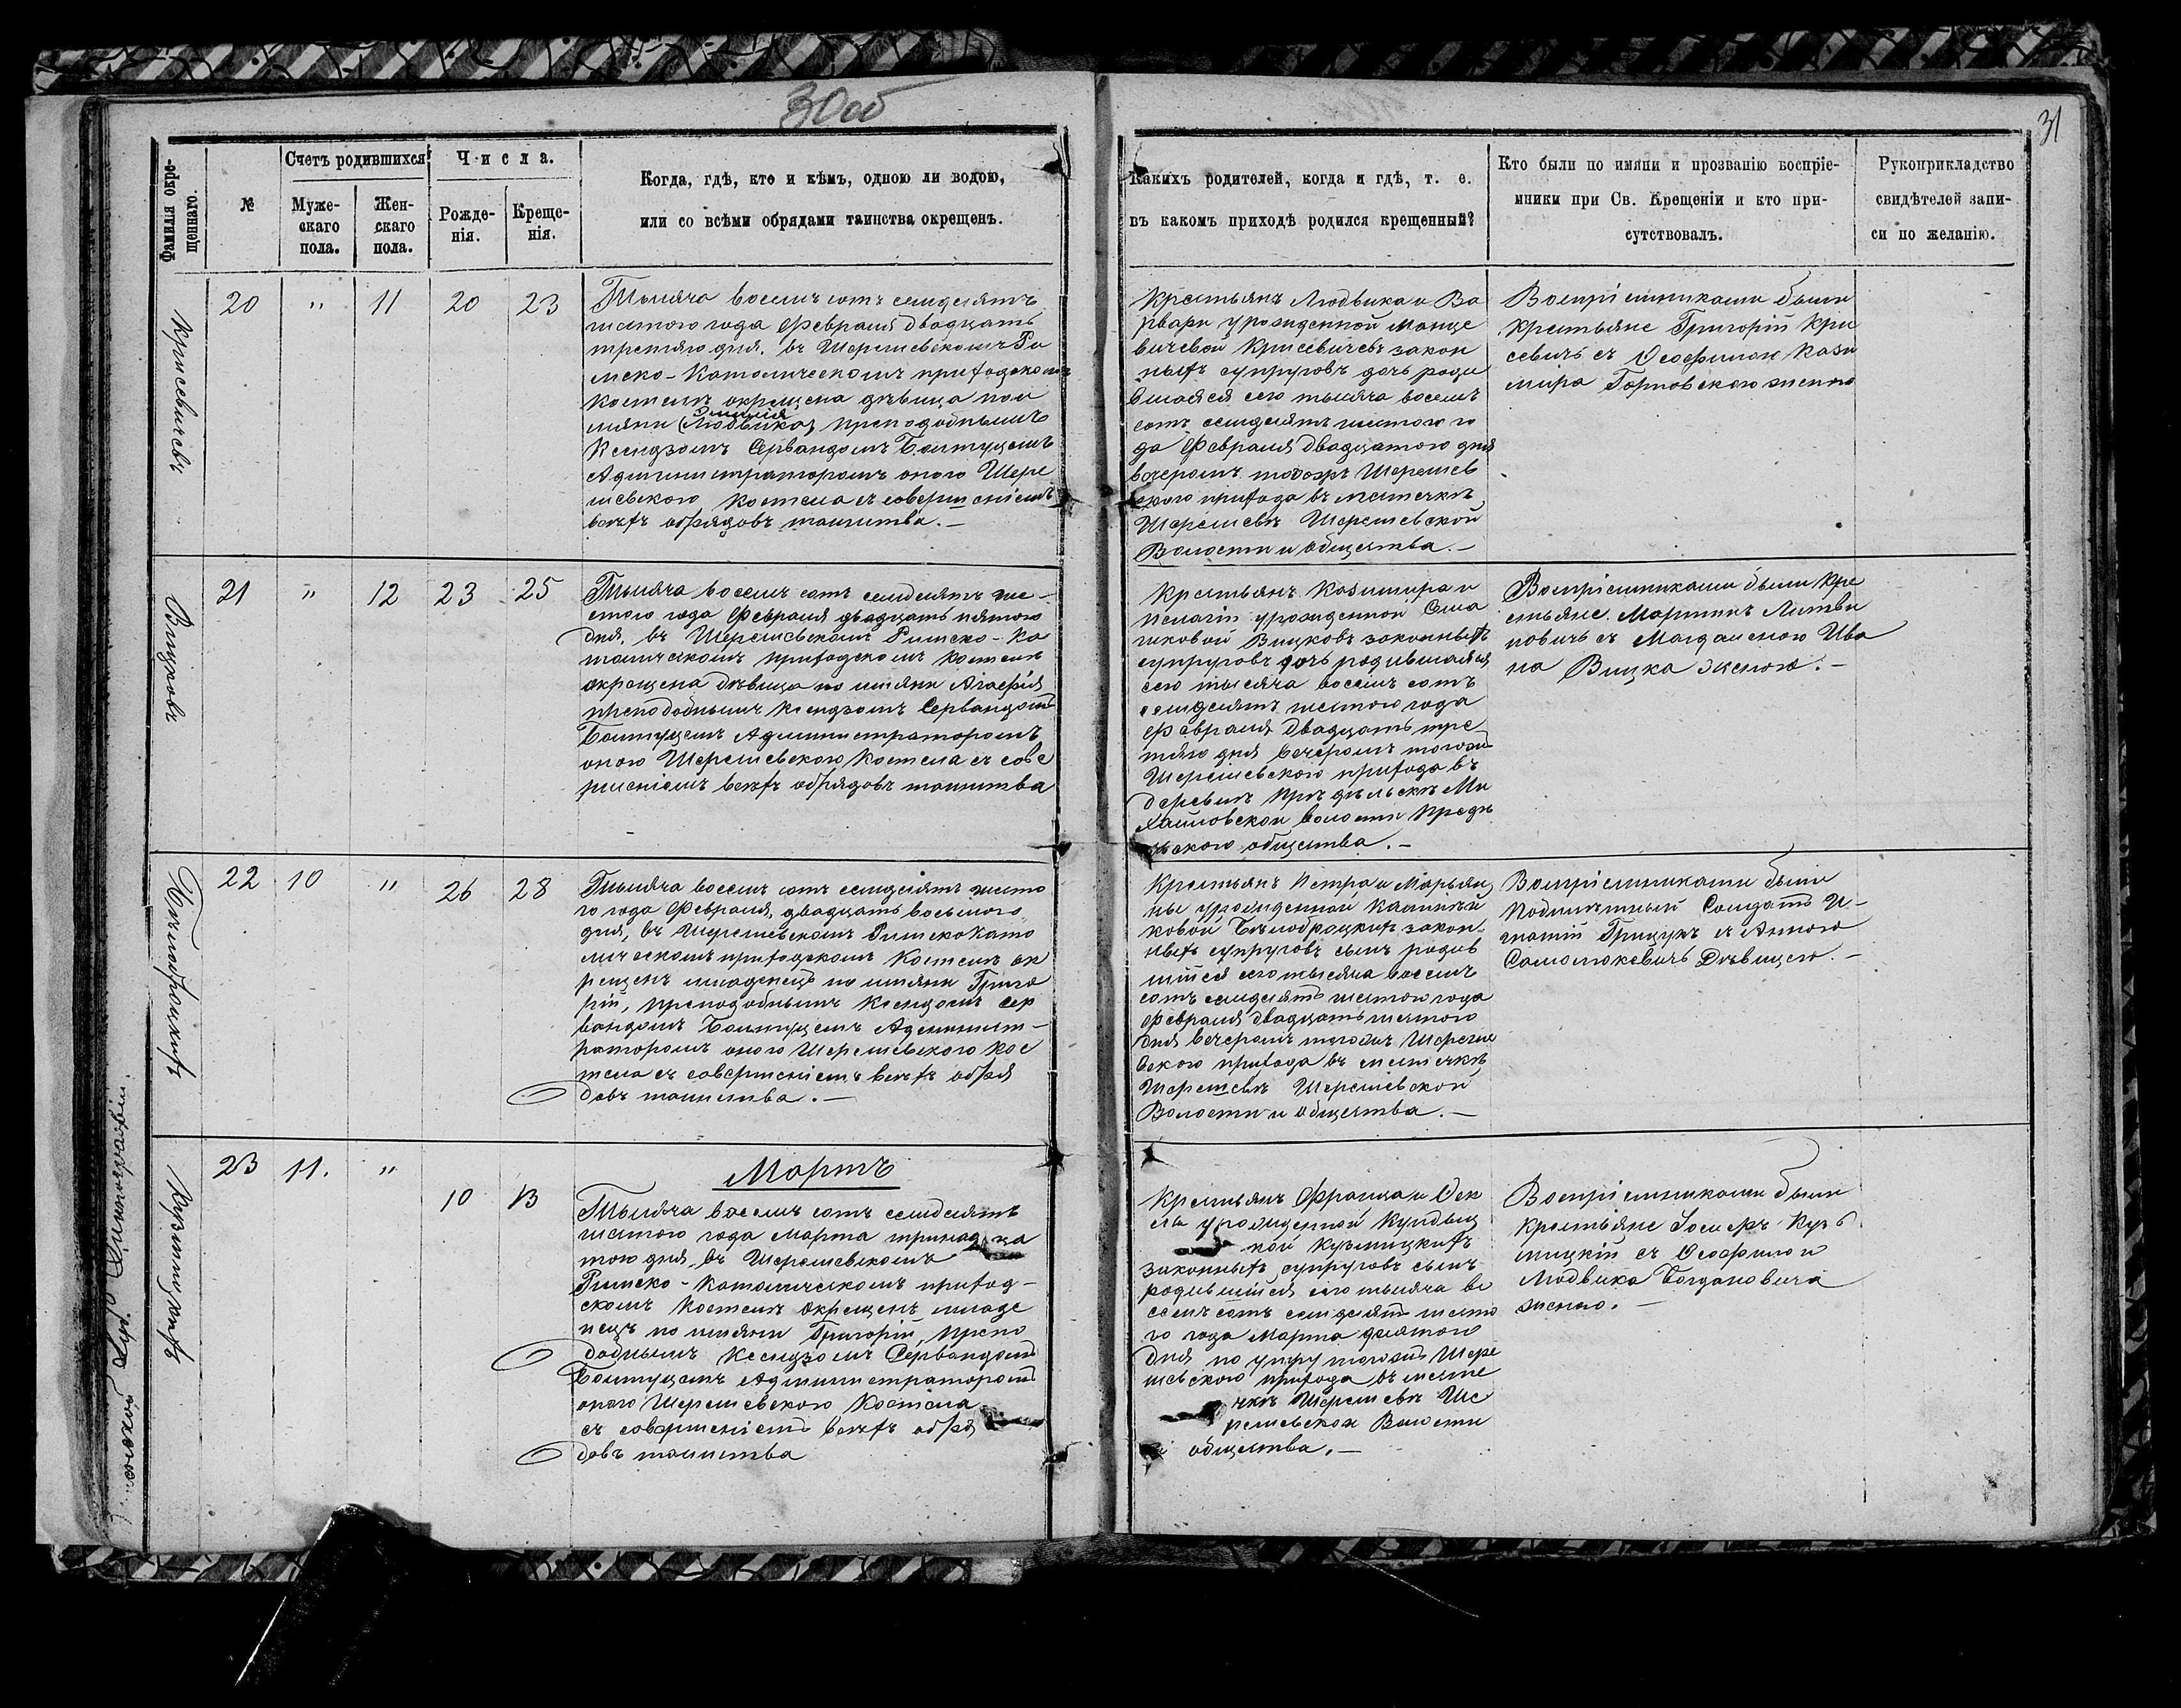 30об
31
Фамилія окре-
щеннаго.
№
Счетъ родившихся
Муже-
скаго
пола.
Жен-
скаго
пола.
Числа.
Рожде-
нія.
Креще-
нія.
Когда, гдѣ, кто и кѣмъ, одною ли водою,
или со всѣми обрядами таинства окрещенъ.
Какихъ родителей, когда и гдѣ, т. е.
въ какомъ приходѣ родился крещенный?
Кто были по имяни и прозванію воспріе-
мники при Св. Крещеніи и кто при-
сутствовалъ.
Рукоприкладство
свидѣтелей запи-
си по желанію.
Крисевичевъ
20 " 11 20 23
Тысяча восемь сотъ семдесятъ
шестого года Февраля двадцать
третяго дня, въ Шерешевскомъ Ри
мско-Католическомъ приходскомъ
костелѣ окрещена дѣвица по и
мяни Эмилія (Людвика) преподобнымъ
Ксендзомъ Сервандомъ Болтуцемъ
Администраторомъ оного Шере
шевского костела съ совершеніемъ
всѣхъ обрядовъ таинства.—
Крестьянъ Людвика и Ва
рвары урожденной Манце
вичевой Крисевичевъ закон
ныхъ супруговъ дочь роди
вшаяся сего тысяча восемь
сотъ семдесятъ шестого го
да Февраля двадцатого дня
вечеромъ тогожъ Шерешев
ского прихода въ местечкѣ
Шерешевѣ Шерешевской
Волости и общества.—
Воспріемниками были
крестьяне Григорій Кри
севичъ съ Теофилою Кази
мира Горновского женою
Вицковъ
21 " 12 23 25
Тысяча восемь сотъ семдесятъ ше-
стого года Февраля двадцать пятого
дня, въ Шерешевскомъ Римско-Ка
толическомъ приходскомъ костелѣ
окрещена дѣвица по имяни Агаѳія
преподобнымъ Ксендзомъ Сервандомъ
Болтуцемъ Администраторомъ
оного Шерешевского костела съ сове
ршеніемъ всѣхъ обрядовъ таинства
Крестьянъ Казимира и
Пелагіи урожденной
Вицковъ законныхъ
супруговъ дочь родившаяся
сего тысяча восемь сотъ
семдесятъ шестого года
Февраля двадцать тре-
тяго дня вечеромъ тогожъ
Шерешевского прихода въ
деревнѣ Ми
хайловской волости
общества.—
Воспріемниками были кре
стьяне Мартинъ Литви
новичъ съ Магдаленою Ива
на Вицка женою.—
Бѣлоброцкихъ
22 10 " 26 28
Тысяча восемь сотъ семдесятъ шесто
го года Февраля, двадцать восьмого
дня, въ Шерешевскомъ РимскоКато
лическомъ приходскомъ костелѣ ок
рещенъ младенецъ по имяни Григо
рій, преподобнымъ Ксендзомъ Сер
вандомъ Болтуцемъ Администра-
раторомъ оного Шерешевского кос
тела съ совершеніемъ всѣхъ обря
довъ таинства.—
Крестьянъ Петра и Марьян
ны урожденной
Бѣлоброцкихъ закон
ныхъ супруговъ сынъ родив
шійся сего тысяча восемь
сотъ семдесятъ шестого года
Февраля двадцать шестого
дня вечеромъ тогожъ Шереше
вского прихода въ местечкѣ
Шерешевѣ Шерешевской
Волости и общества.—
Воспріемниками были
Солдатъ И-
гнатій Грицукъ съ Анною
Самолюкевичъ Дѣвицею.—
Кузмицкихъ
Мартъ
23 11. " 10 13
Тысяча восемь сотъ семдесятъ
шестого года марта тринадца
того дня, въ Шерешевскомъ
Римско-Католическомъ приход-
скомъ костелѣ окрещенъ младе
нецъ по имяни Григорій, препо
добнымъ Ксендзомъ Сервандомъ
Болтуцемъ Администраторомъ
оного Шерешевского костела
съ совершеніемъ всѣхъ обря
довъ таинства
Крестьянъ Франца и Тек
ли урожденной
Кузьмицкихъ
законныхъ супруговъ сынъ
родившійся сего тысяча во
семь сотъ семдесятъ шесто
го года Марта десятого
дня по утру тогожъ Шере
шевского прихода въ месте
чкѣ Шерешевѣ Ше
решевской Волости
и общества.—
Воспріемниками были
крестьяне Іосифъ Кузь
мицкій съ Теофилою
Людвика Богдановича
женою.—